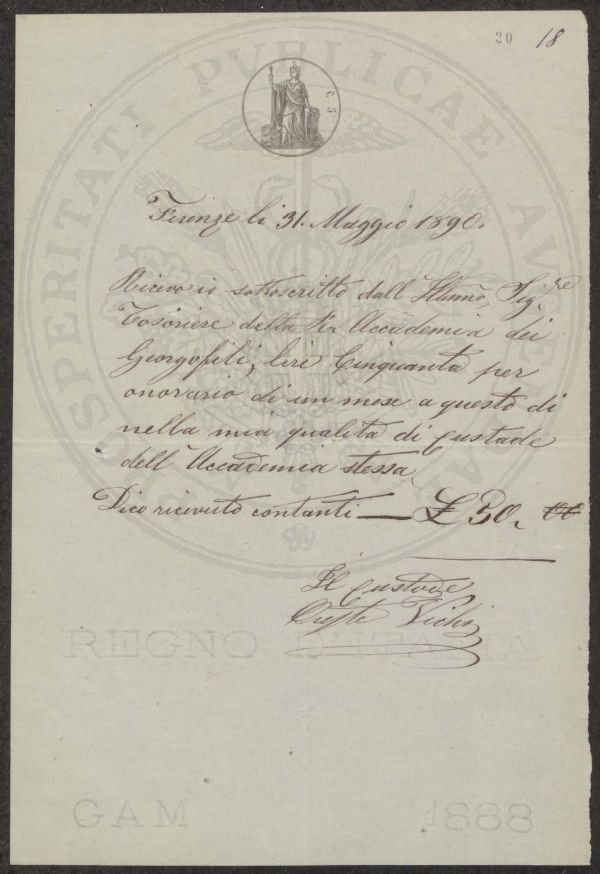 20 18
PROSPERITATI PVBLICAE AVGENDAE
C 5
Firenze li 31. Maggio 1890.
Ricevo io sottoscritto dall Illmo, Sig.re
Tesoriere della R. Accademia dei
Georgofili, lire Cinquanta per
onorario di un mese a questo di
nella mia qualità di Custode
dell'Accademia stessa
Dico ricevuto contanti — £ 50.
Il Custode
Oreste Vichi
REGNO D'ITALIA
GAM 1888